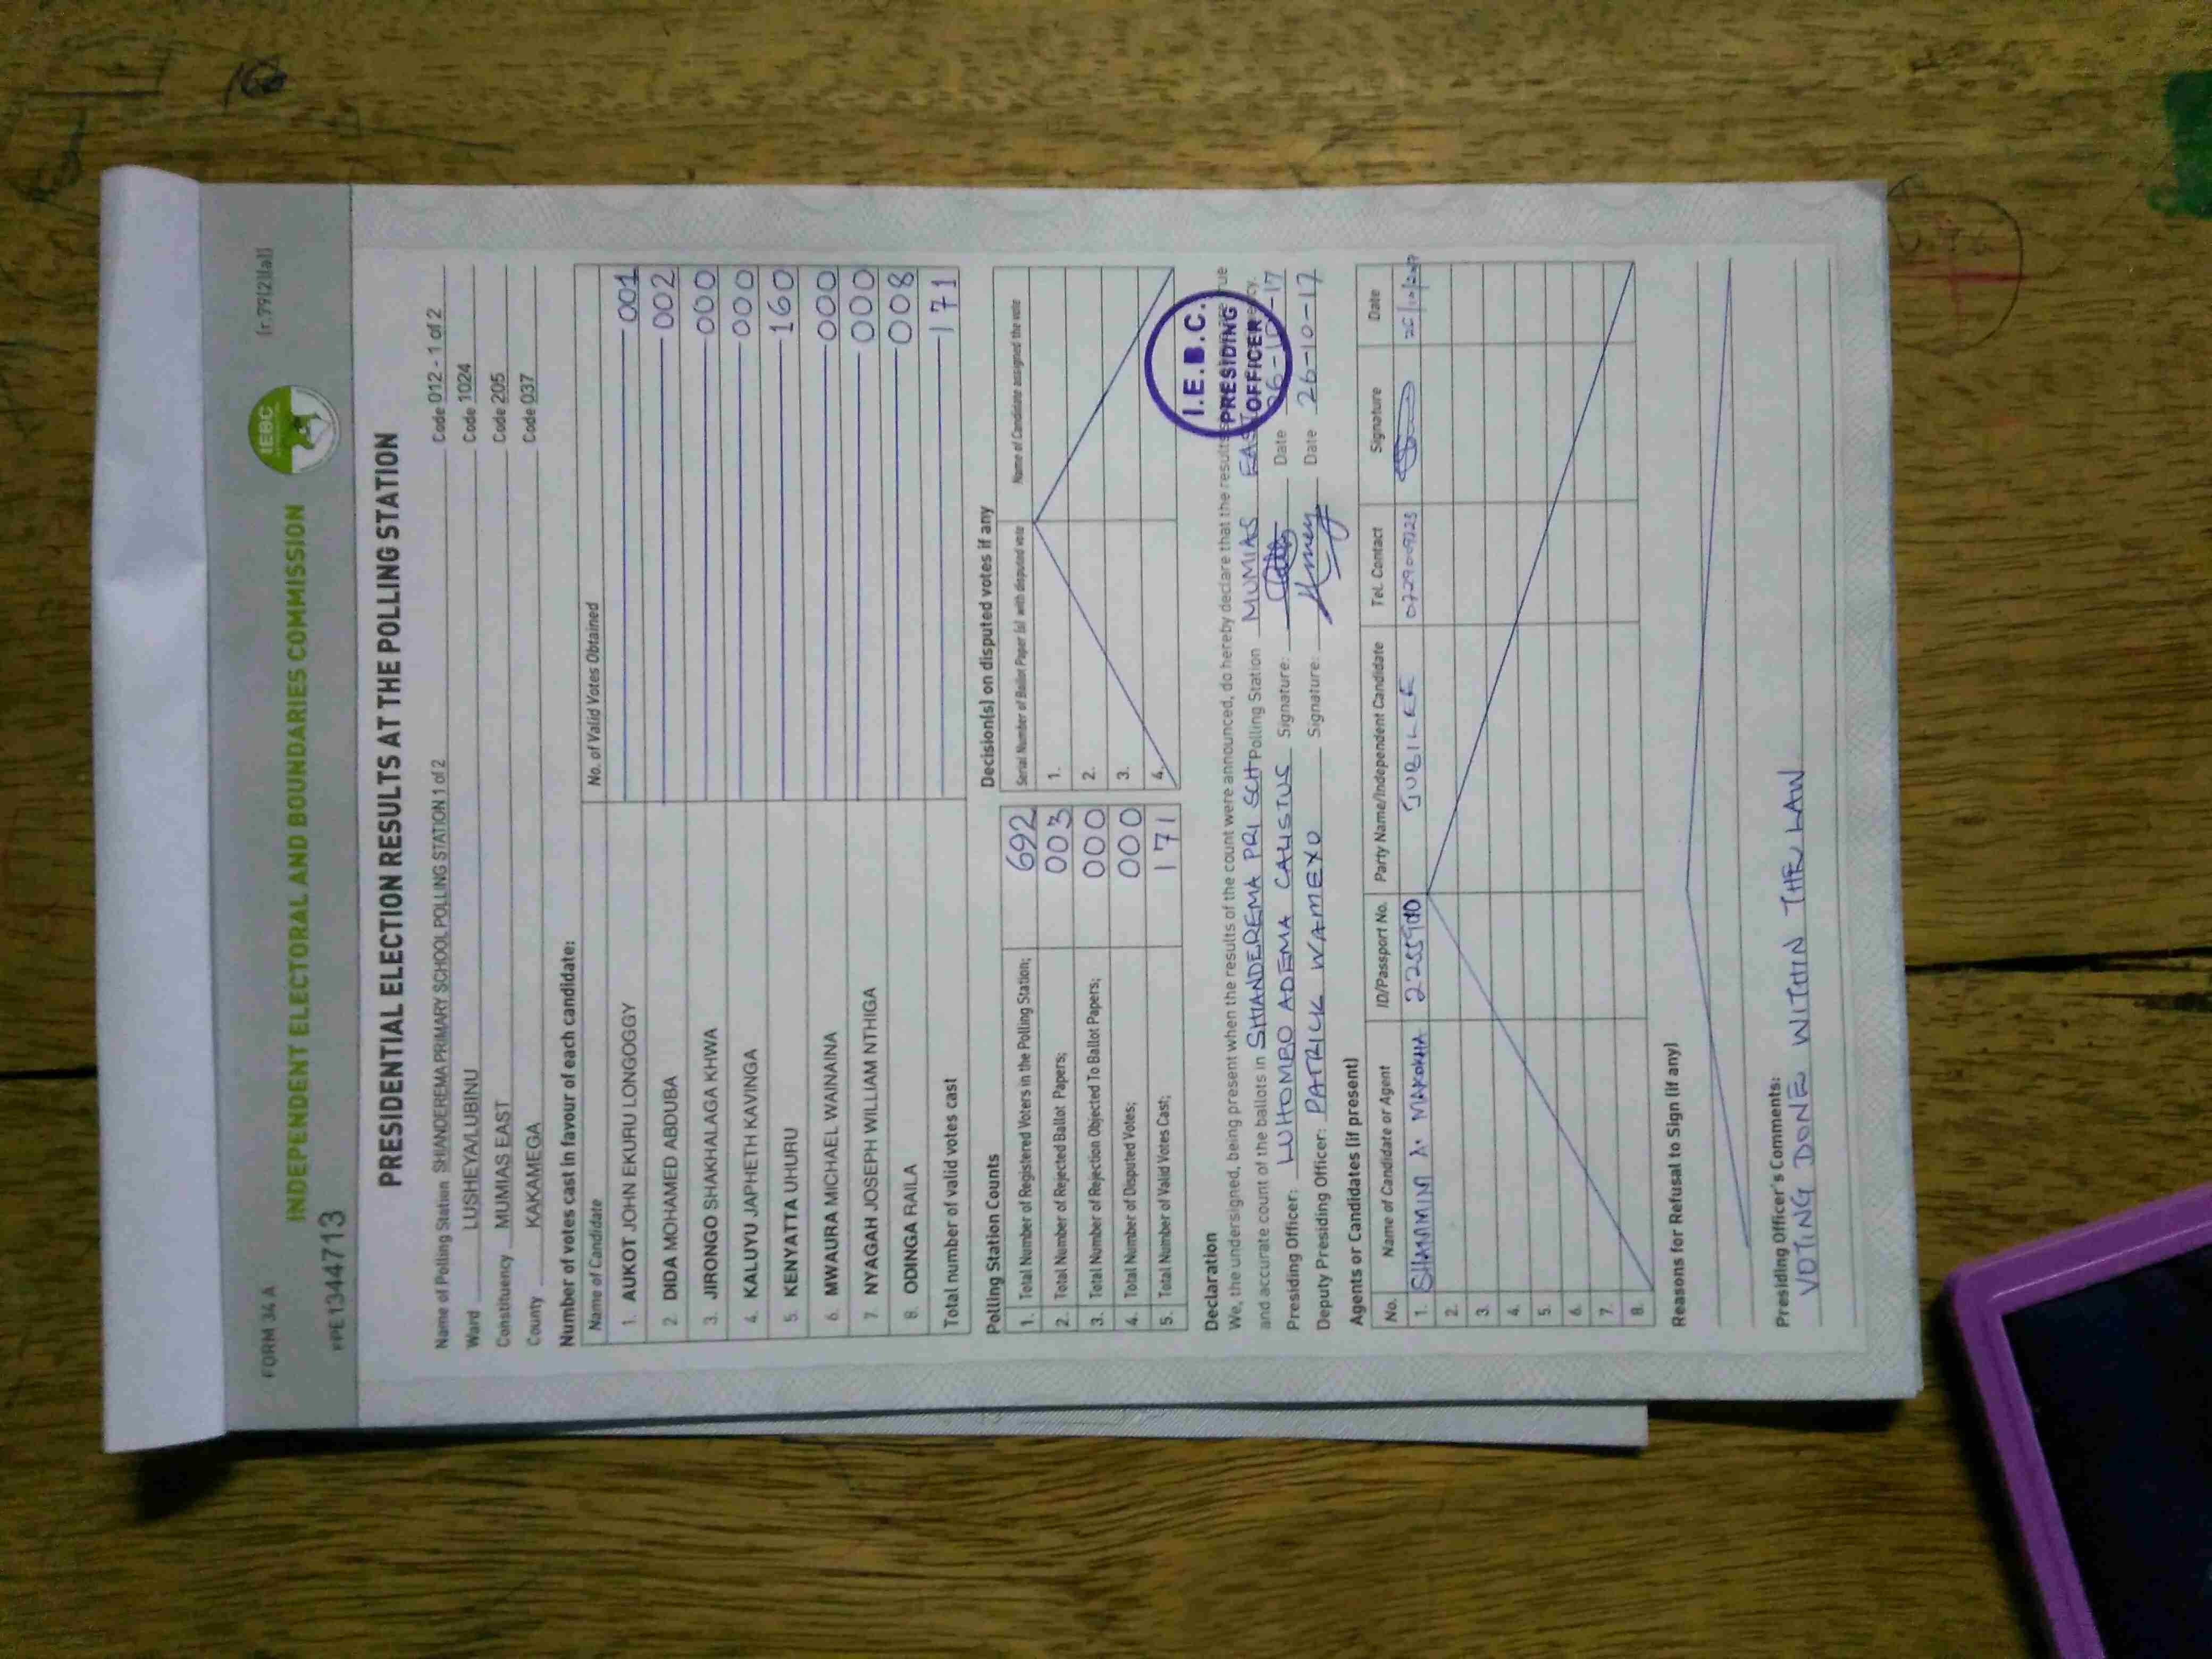 FORM 34 A
[r.79(2)(a)]
IEBC
INDEPENDENT ELECTORAL AND BOUNDARIES COMMISSION
PPE1344713
PRESIDENTIAL ELECTION RESULTS AT THE POLLING STATION
Name of Polling Station SHIANDEREMA PRIMARY SCHOOL POLLING STATION 1 of 2 Code 012 - 1 of 2
Ward LUSHEYA/LUBINU Code 1024
Constituency MUMIAS EAST Code 205
County KAKAMEGA Code 037
Number of votes cast in favour of each candidate:
Name of Candidate No. of Valid Votes Obtained
1. AUKOT JOHN EKURU LONGOGGY 001
2. DIDA MOHAMED ABDUBA 002
3. JIRONGO SHAKHALAGA KHWA 000
4. KALUYU JAPHETH KAVINGA 000
5. KENYATTA UHURU 160
6. MWAURA MICHAEL WAINAINA 000
7. NYAGAH JOSEPH WILLIAM NTHIGA 000
8. ODINGA RAILA 008
Total number of valid votes cast 171
Polling Station Counts
1. Total Number of Registered Voters in the Polling Station; 692
2. Total Number of Rejected Ballot Papers; 003
3. Total Number of Rejection Objected To Ballot Papers; 000
4. Total Number of Disputed Votes; 000
5. Total Number of Valid Votes Cast; 171
Decision(s) on disputed votes if any
Serial Number of Ballot Paper (s) with disputed vote Name of Candidate assigned the vote
1.
2.
3.
4.
Declaration
We, the undersigned, being present when the results of the count were announced, do hereby declare that the results true
and accurate count of the ballots in SHIANDEREMA PRI SCH Polling Station MUMIAS EAST
I.E.B.C.
PRESIDING
OFFICER
Presiding Officer: LUHOMBO ADEMA CALISTUS Signature: Date 26-10-17
Deputy Presiding Officer: PATRICK WAMEYO Signature: Date 26-10-17
Agents or Candidates (if present)
No. Name of Candidate or Agent ID/Passport No. Party Name/Independent Candidate Tel. Contact Signature Date
1. SHAMMIM A. MAKOKHA JUBILEE
2.
3.
4.
5.
6.
7.
8.
Reasons for Refusal to Sign (if any)
Presiding Officer's Comments:
VOTING DONE WITHIN THE LAW